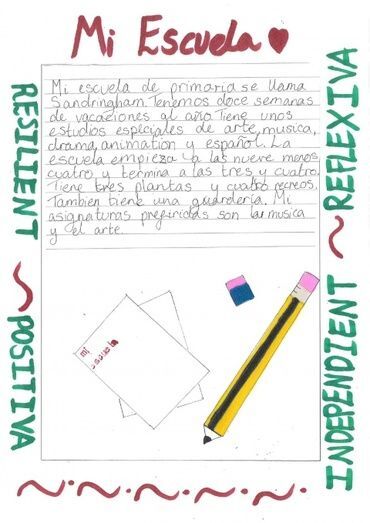 Mi Escuela
Mi escuela de primaria se llama
Sandringham. Tenemos doce semanas
de vacaciones al año. Tiene unos
estudios especiales de arte, musica,
drama, animation y español. La
escuela empieza a las nueve menos
cuatro y termina a las tres y cuatro.
Tiene tres plantas y cuatro recreos.
Tambien tiene una guardería. Mi
asignaturas prefiridas son la musica
y el arte.
mi
escuela
RESILIENT
POSITIVA
REFLEXIVA
INDEPENDIENT